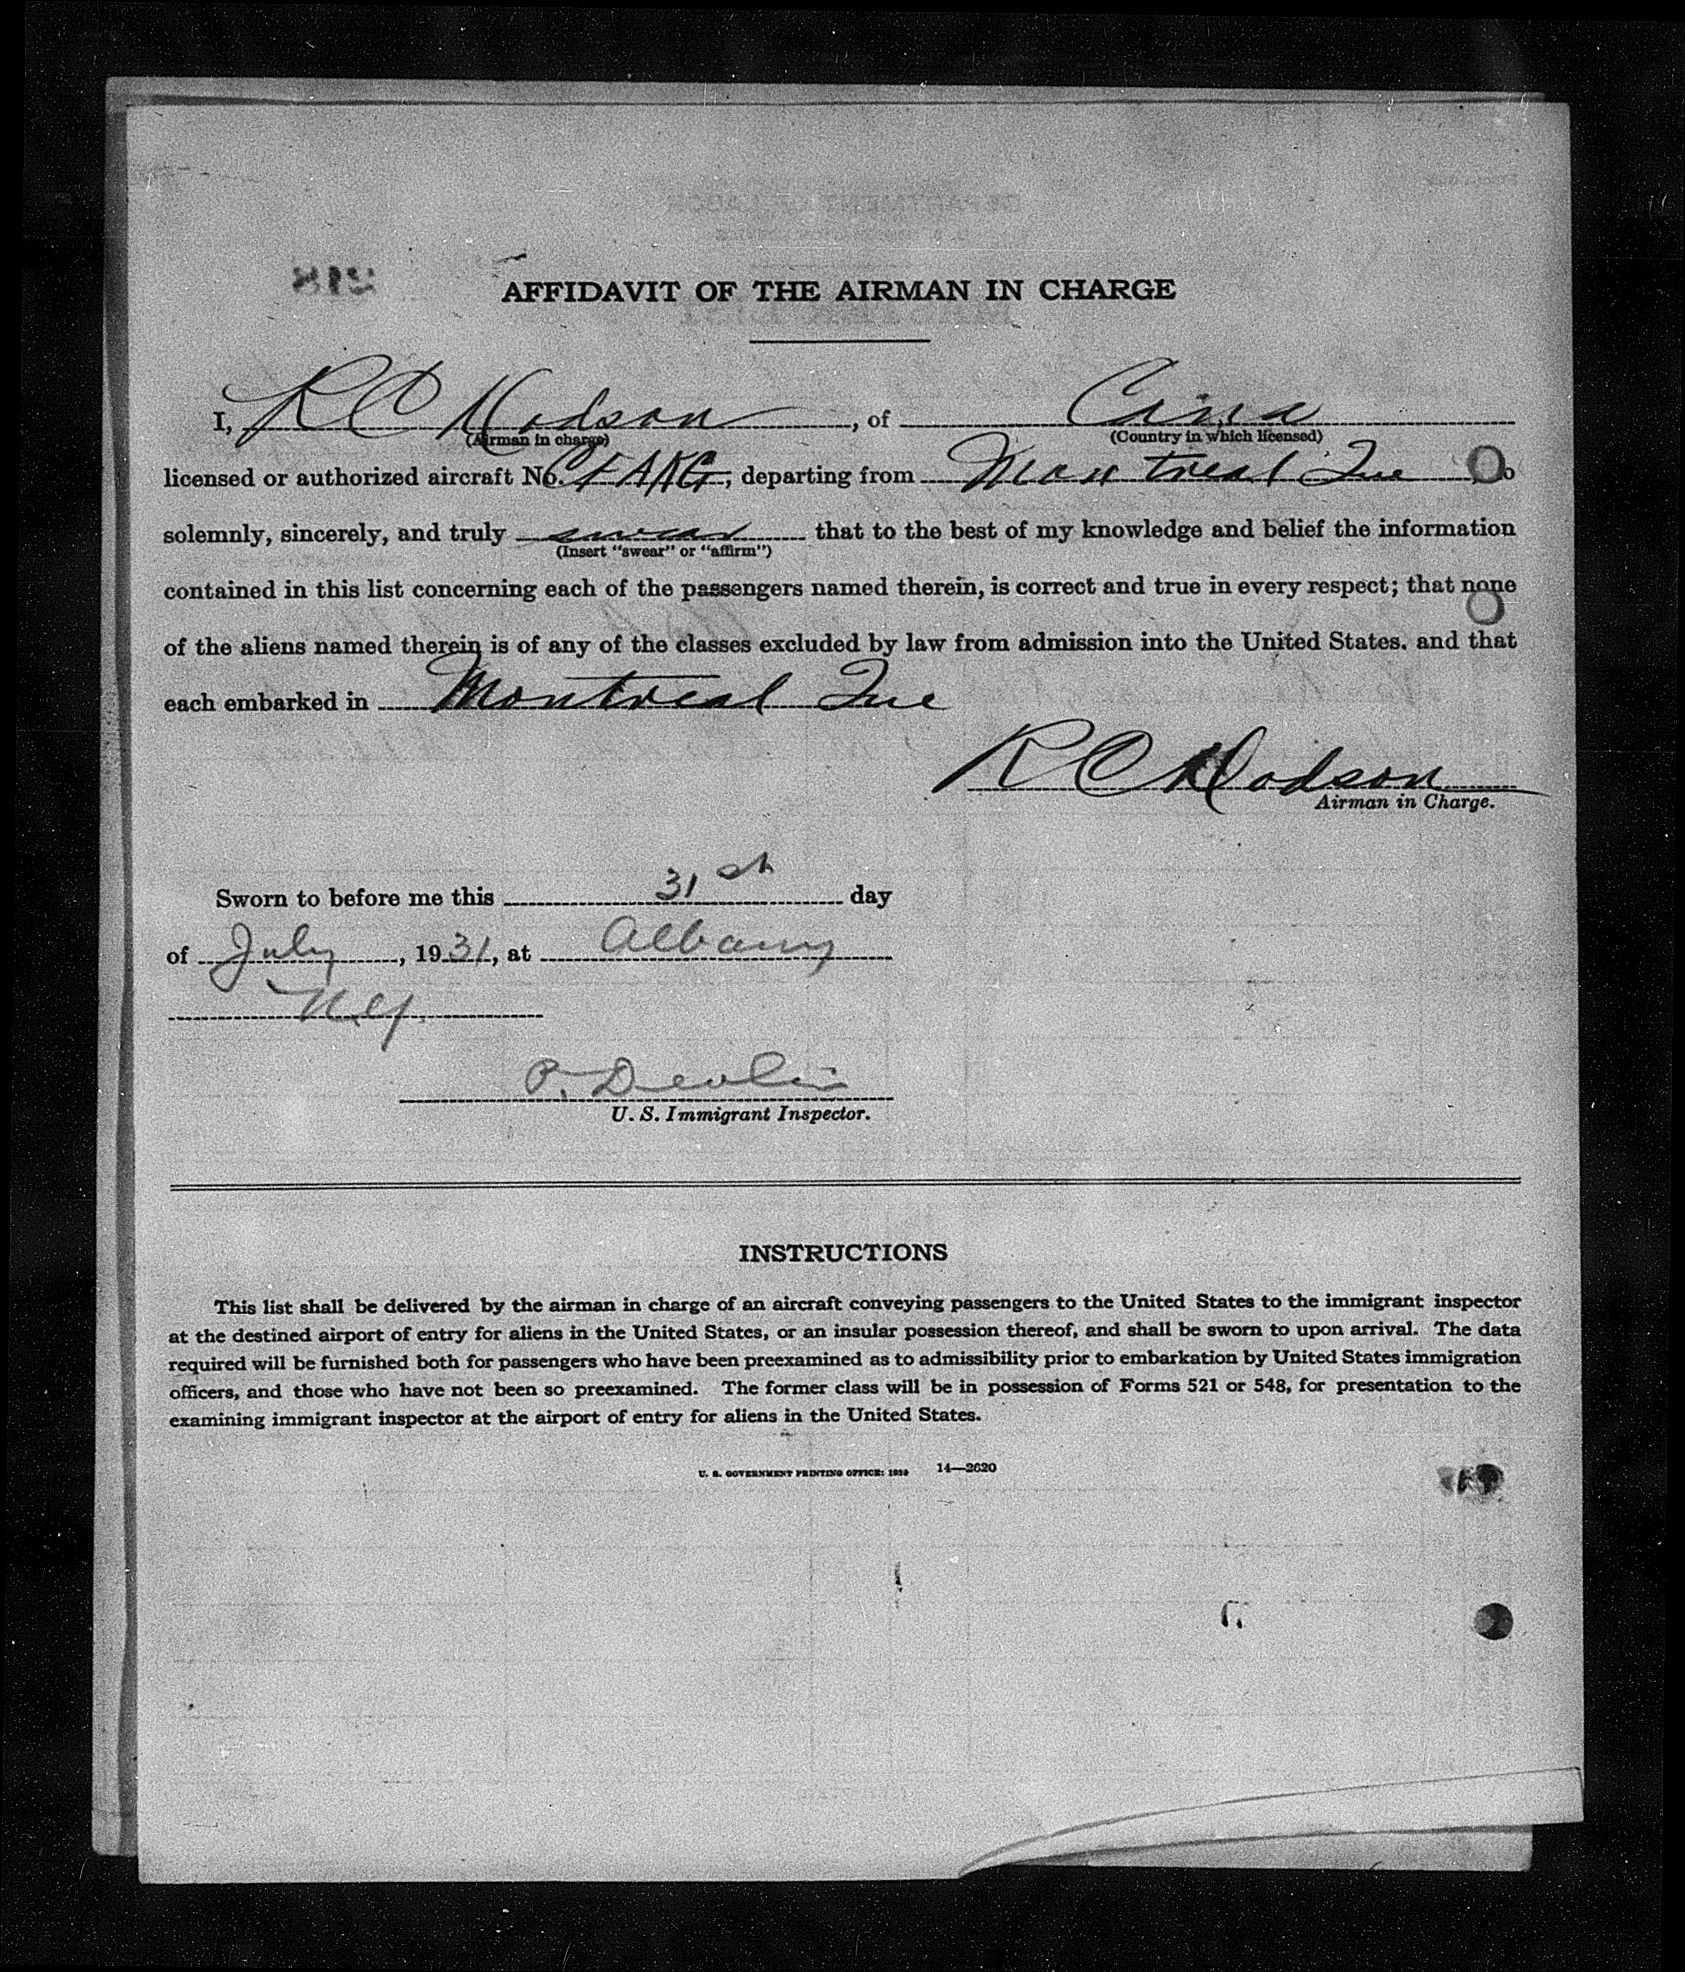 AFFIDAVIT OF THE AIRMAN IN CHARGE
I, R C Hodson, of
(Airman in charge) (Country in which licensed)
licensed or authorized aircraft No. CFAKG, departing from Montreal Que, do
solemnly, sincerely, and truly swear that to the best of my knowledge and belief the information
(Insert "swear" or "affirm")
contained in this list concerning each of the passengers named therein, is correct and true in every respect; that none
of the aliens named therein is of any of the classes excluded by law from admission into the United States, and that
each embarked in Montreal Que
R C Hodson
Airman in Charge.
Sworn to before me this 31st day
of July, 1931, at Albany
N.Y.
P. Devlin
U. S. Immigrant Inspector.
INSTRUCTIONS
This list shall be delivered by the airman in charge of an aircraft conveying passengers to the United States to the immigrant inspector
at the destined airport of entry for aliens in the United States, or an insular possession thereof, and shall be sworn to upon arrival. The data
required will be furnished both for passengers who have been preexamined as to admissibility prior to embarkation by United States immigration
officers, and those who have not been so preexamined. The former class will be in possession of Forms 521 or 548, for presentation to the
examining immigrant inspector at the airport of entry for aliens in the United States.
U. S. GOVERNMENT PRINTING OFFICE: 14—2620